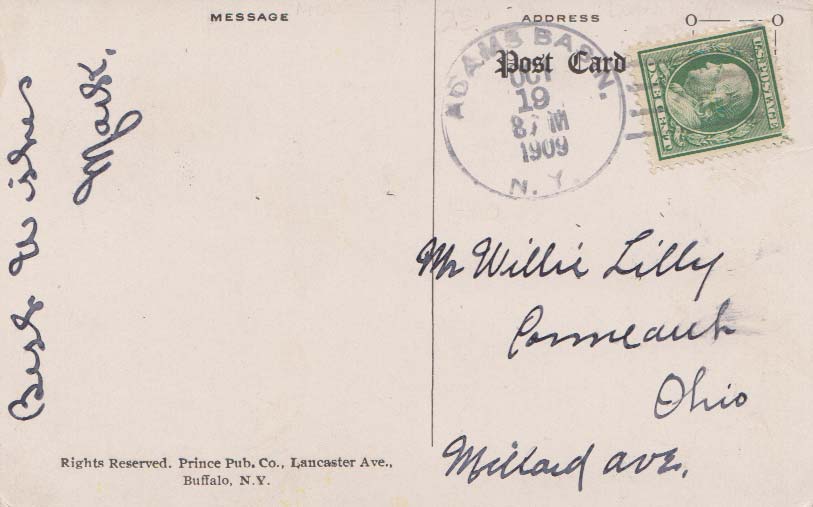 MESSAGE
Best Wishes
Mark.
Rights Reserved. Prince Pub. Co., Lancaster Ave.,
Buffalo, N.Y.
ADDRESS
Post Card
ADAMS BASIN.
OCT
19
8 7 M
1909
N. Y.
U.S. POSTAGE
ONE CENT
Mr Willie Lilly
Conneaut
Ohio
Millard ave.